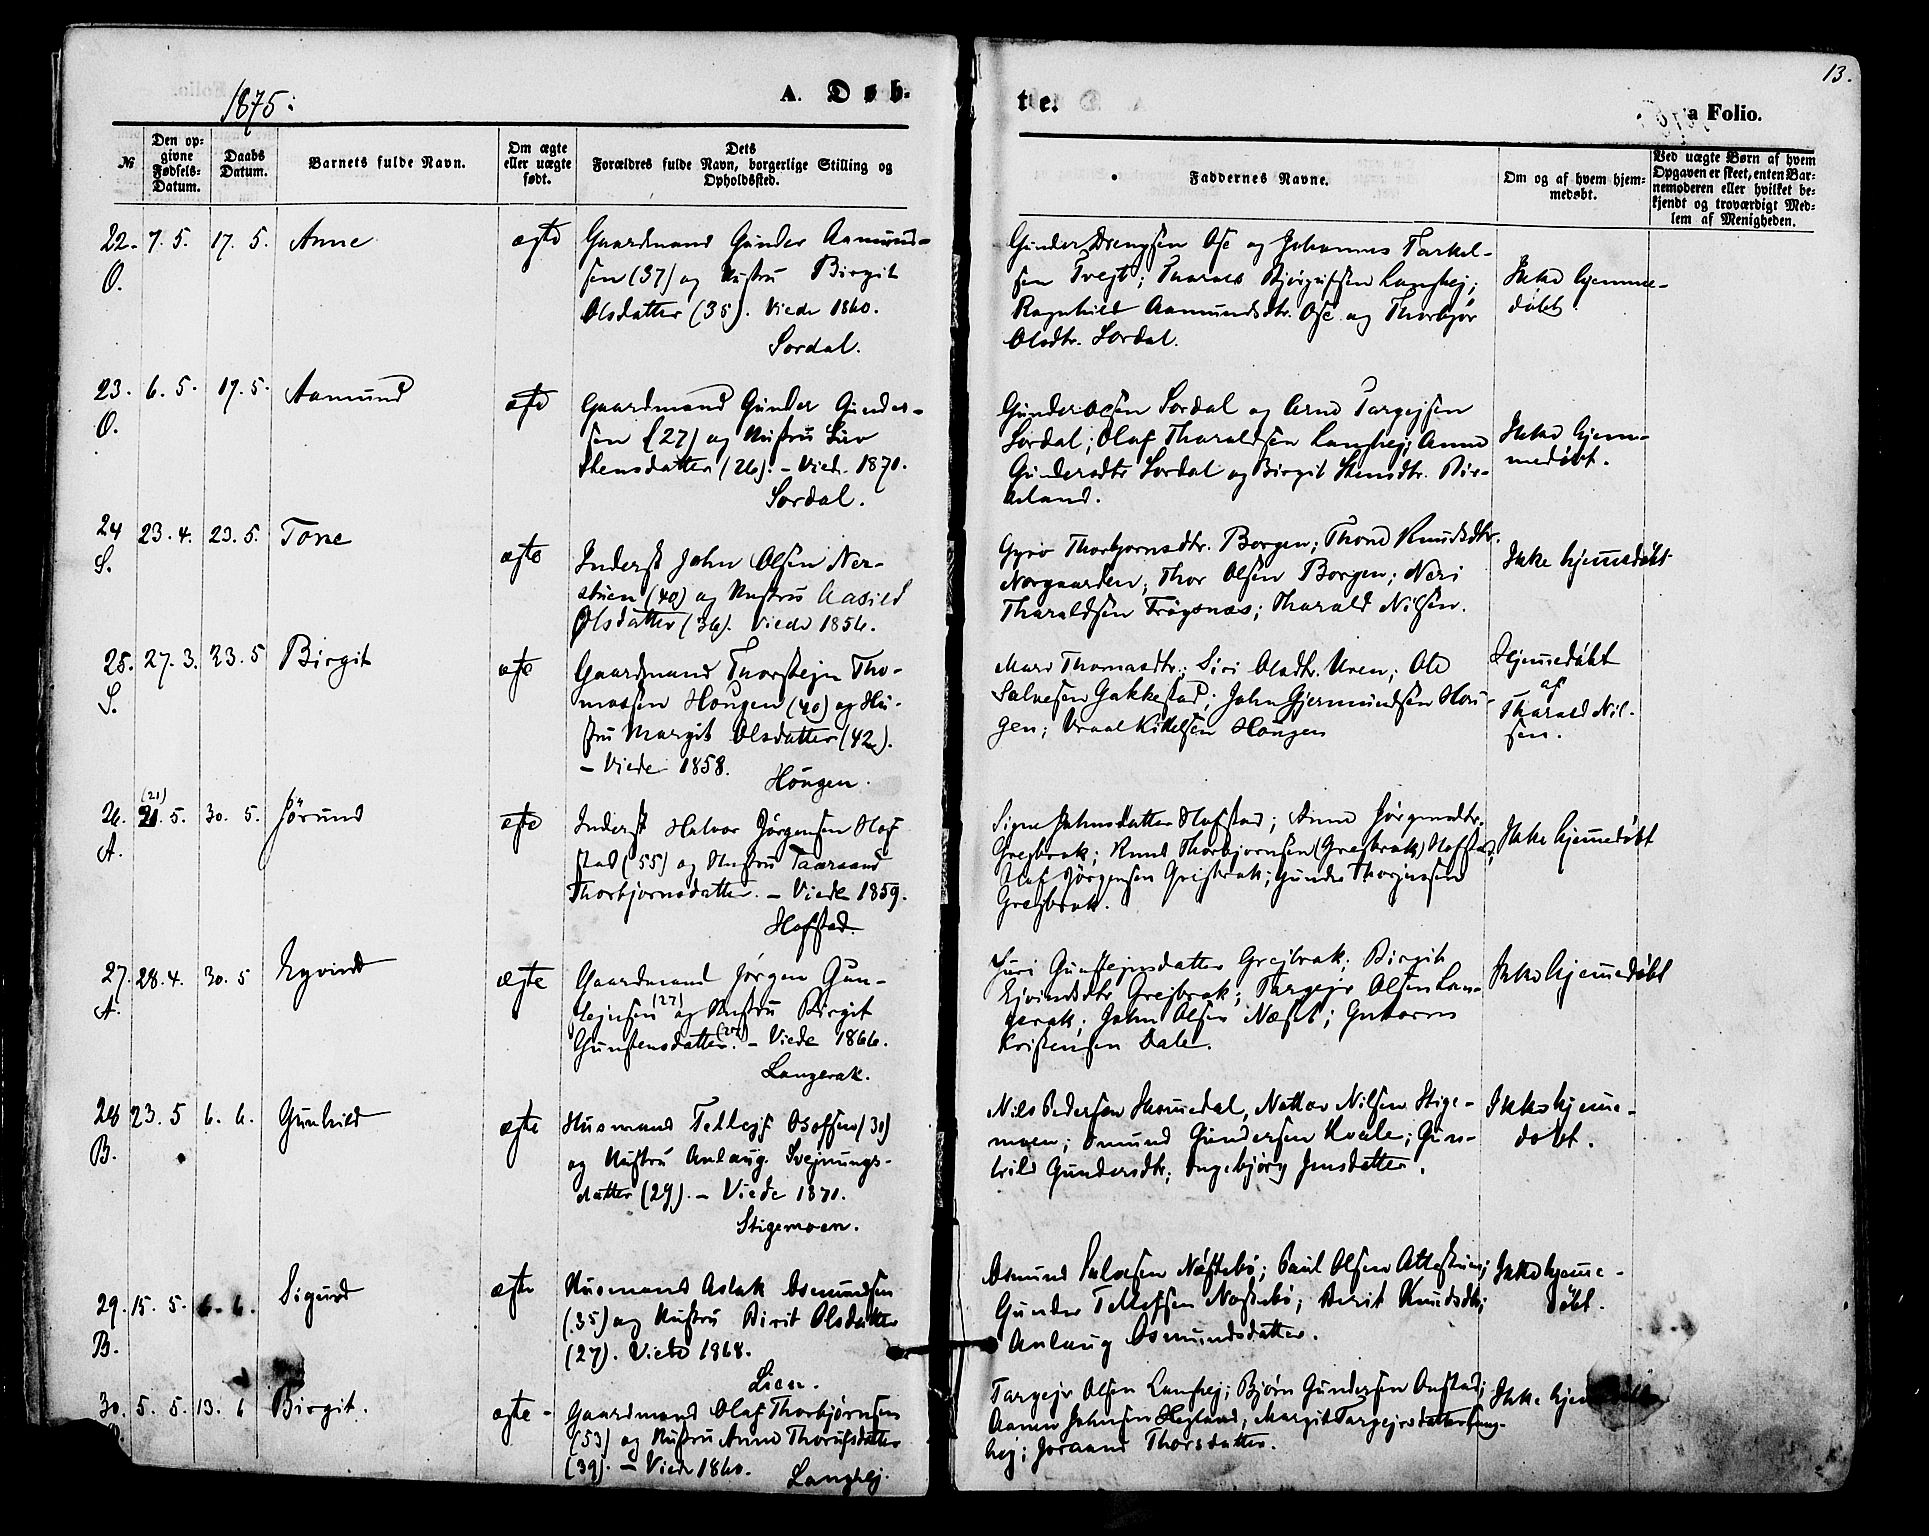 13.
1875:
A. Døb-
te.
a Folio.
№
Den op-
givne
Fødsels-
Datum.
Daabs
Datum.
Barnets fulde Navn.
Om ægte
eller uægte
født.
Dets
Forældres fulde Navn, borgerlige Stilling og
Opholdssted.
Faddernes Navne.
Om og af hvem hjem-
medøbt.
Ved uægte Børn af hvem
Opgaven er skeet, enten Bar-
nemoderen eller hvilket be-
kjendt og troværdigt Med-
lem af Menigheden.
22. 7. 5. 17. 5. Anne
O.
ægte
Gaardmand Gunder Aamund-
sen (37) og Hustru Birgit
Olsdatter (35). Viede 1860.
Sordal.
Gunder Drengsen Ose og Johannes Tarkel-
sen Tvejt; Tharald Bjørgufsen Langhej;
Ragnhild Aamundsdtr. Ose og Thorbjør
Olsdtr. Sordal.
Ikke hjemme-
døbt
23. 6. 5. 17. 5. Aamund
O.
ægte
Gaardmand Gunder Gunder-
sen (27) og Hustru Siv
Stensdatter (26). – Viede 1870.
Sordal.
Gunder Olsen Sordal og Arne Targejsen
Sordal; Olaf Tharaldsen Langhej; Anne
Gundersdtr Sordal og Birgit Stensdtr.
Ikke hjem-
medøbt.
24 23. 4. 23. 5. Tone
S.
ægte
Inderst John Olsen Ner-
stuen (40) og Hustru Aasild
Olsdatter (36). Viede 1856.
Gyro Thorbjørnsdtr. Borgen; Thone Knudsdtr.
Norgaarden; Thor Olsen Borgen; Neri
Tharaldsen Frøysnæs; Tharald Nilsen.
Ikke hjemedøbt
25. 27. 3. 23. 5 Birgit
S.
ægte
Gaardmand Thorstejn Tho-
massen Hougen (40) og Hu-
stru Margit Olsdatter (42).
– Viede 1858.
Hougen.
Mari Thomasdtr.; Siri Olsdtr. Uren; Ole
Salvesen Gakkestad; John Gjermundsen Hou-
gen; Vraal Kittelsen Hougen
Hjemedøbt
af
Tharald Nil-
sen.
26. (21) 21. 5. 30. 5. Jørund
A.
ægte
Inderst Halvor Jørgensen Hof
stad (55) og Hustru Taaraand
Thorbjørnsdatter. – Viede 1859.
Hofstad.
Signe Johnsdatter Hofstad; Anne Jørgensdtr.
Grejbrok; Knud Thorbjørnsen (Grejbrok) Hofstad;
Olaf Jørgensen Grejbrok; Gunder
Grejbrok.
Ikke hjemedøbt
27. 28. 4. 30. 5 Eyvind
A.
ægte
Gaardmand Jørgen Gun-
lejnsen (27) og Hustru Birgit
Gunstensdatter. – Viede 1866.
Langerak.
Guri Gunstejnsdatter Grejbrok; Birgit
Ejvindsdtr. Grejbrok; Targejr Olsen Lan-
gerak; John Olsen Næset; Guttorm
Kristensen Dale.
Ikke hjemedøbt
28 23. 5 6. 6. Gunhild
B.
ægte
Husmand Tellejf Osofsen (30)
og Hustru Anlaug Svejnungs-
datter (29). – Viede 1871.
Stigemoen.
Nils Pedersen Skomedal, Nottov Nilsen Stige-
moen; Osmund Gundersen Kvale; Gun-
hild Gundersdtr; Ingebjørg Jensdatter.
Ikke hjeme-
døbt.
29. 15. 5. 6. 6. Sigurd
B.
ægte
Husmand Aslak Osmundsen
(35) og Hustru Birit Olsdatter
(27). Viede 1868.
Lien.
Osmund Salvesen Næstebø; Paul Olsen
Gunder Tellefsen Næstebø; Berit Knudsdtr;
Anlaug Osmundsdatter.
Ikke hjeme-
døbt.
30. 5. 5. 13. 6 Birgit.
ægte -
Gaardmand Olaf Thorbjørnsen
(53) og Hustru Anne Thorufsdatter
(39). – Viede 1860.
Langhej.
Targejr Olsen Langhej; Bjørn Gundersen Austad;
Aanen Johnsen Hegland, Margit Targejrsdatter Lang-
hej; Joraand Thorsdatter.
Ikke